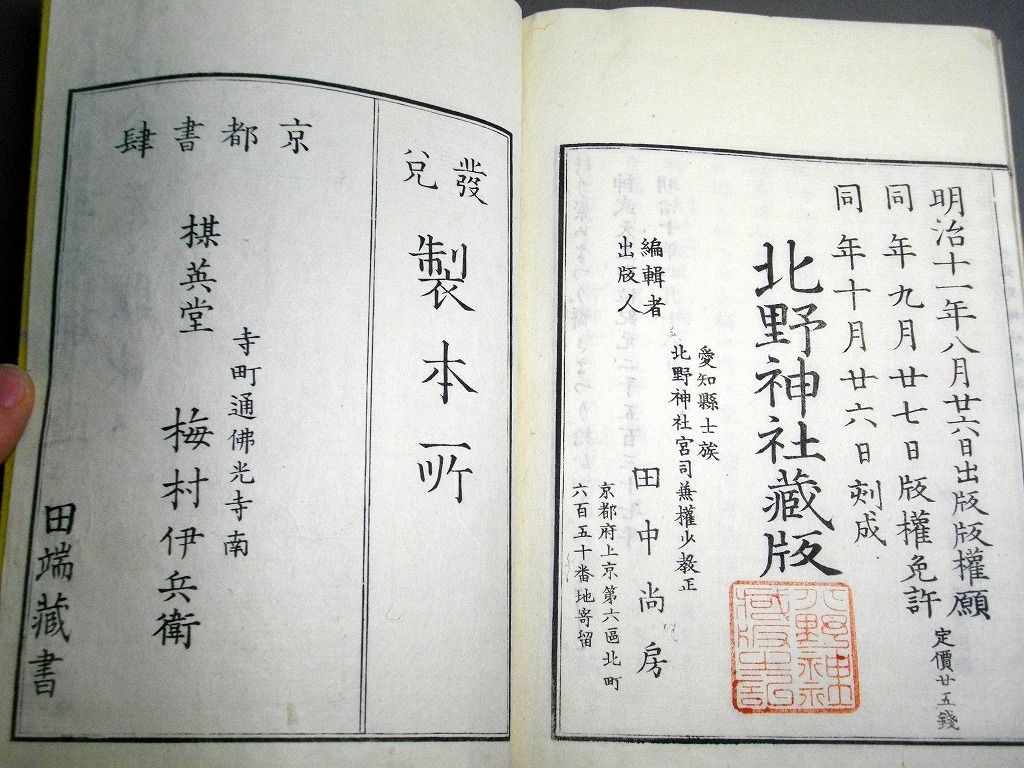 明治十一年八月廿六日出版版權願
定價廿五錢
同年九月廿七日版權免許
同年十月廿六日刻成
北野神社藏版
愛知縣士族
北野神社宮司兼權少敎正
編輯者
出版人
田中尚房
京都府上京第六區北町
六百五十番地寄留
發兌
製本所
京都書肆
寺町通佛光寺南
楳英堂
梅村伊兵衛
田端藏書